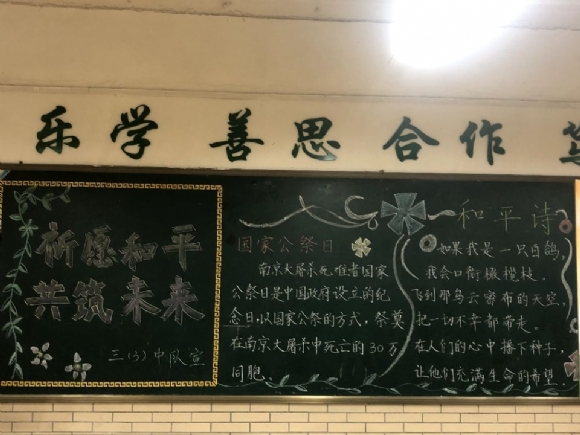 乐学 善思 合作
祈愿和平
共筑未来
三(3)中队宣
国家公祭日
南京大屠杀死难者国家
公祭日是中国政府设立的纪
念日,以国家公祭的方式,祭奠
在南京大屠杀中死亡的30万
同胞。
和平诗
如果我是一只白鸽,
我会口衔橄榄枝。
飞到那乌云密布的天空,
把一切不幸都带走。
在人们的心中播下种子,
让他们充满生命的希望。